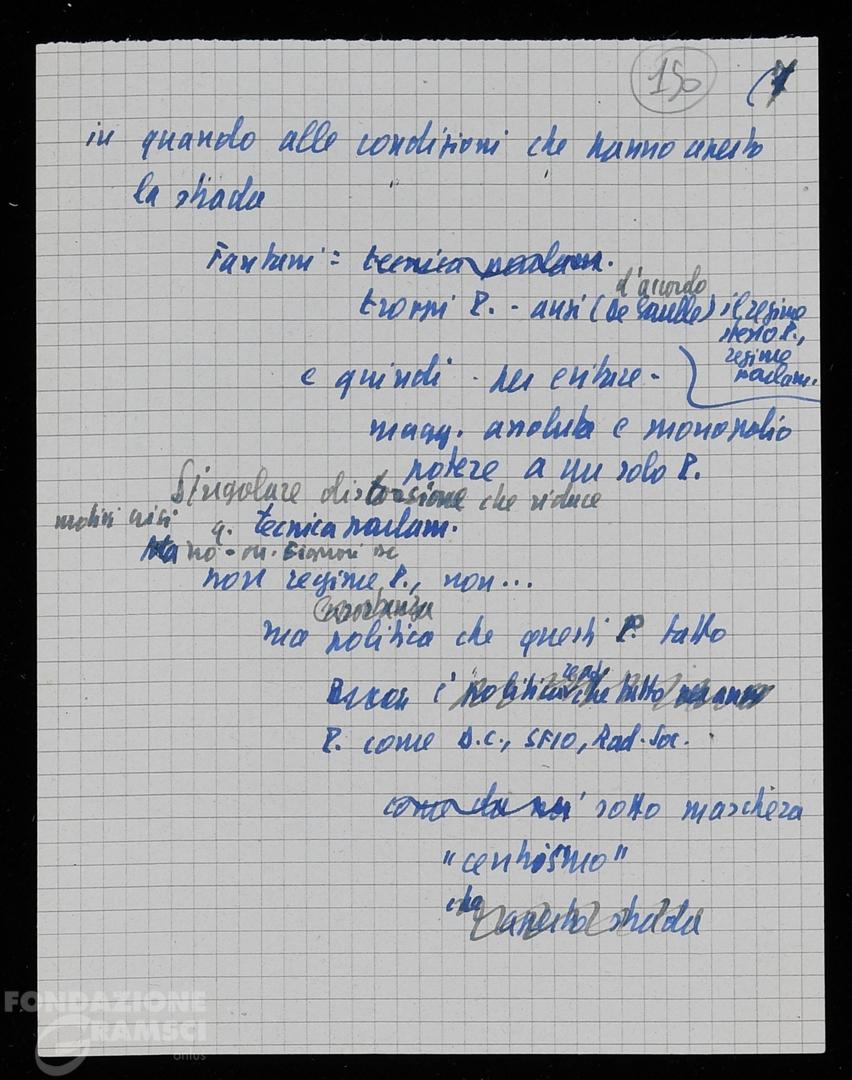 150 (7
in quando alle condizioni che hanno aperto
la strada
Fanfani = tecnica parlam.
d'accordo
troppi P. - anzi (De Gaulle) il regime
stesso P.,
regime
parlam.
e quindi - per evitare -
magg. assoluta e monopolio
potere a un solo P.
Singolare distorsione che riduce
motivi crisi q. tecnica parlam.
Ma no - on.
non regime P., non...
ma politica che questi P. fatto
politica che tutto
P. come D.C., SFIO, Rad. Soc.
come da noi sotto maschera
"centrismo"
cha aperto strada
FONDAZIONE
GRAMSCI
onlus